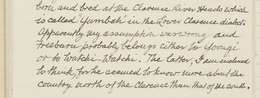 born and bred at the Clarence River Heads which
is called Yumbah in the Lower Clarence dialect.
Apparently my assumption was wrong and
Freeburn probably belongs either to Yoregi
or to Watchi-Watchi. The latter, I am inclined
to think, for he seemed to know more about the
country north of the Clarence than that of the south.